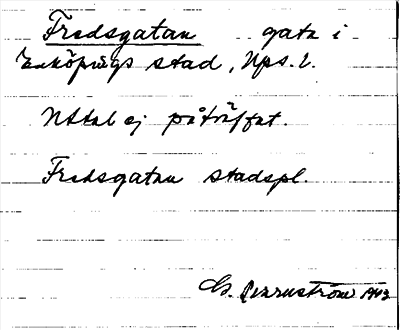 Fredsgatan gata i
Enköpings stad, Upps. l.
Uttal ej påträffat.
Fredsgatan stadspl.
1943